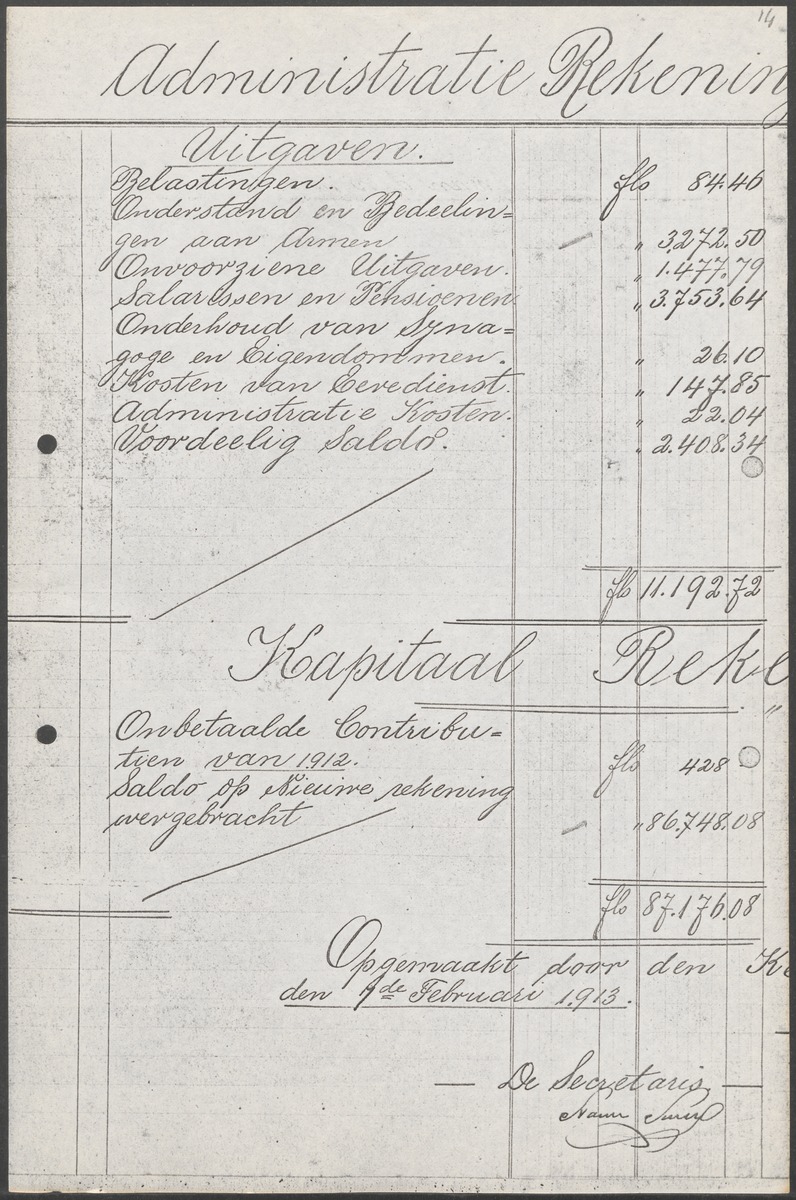 14
Administratie Rekening
Uitgaven.
Belastingen. fls 84.46
Onderstand en Bedeelin=
gen aan Armen " 3.272.50
Onvoorziene Uitgaven. " 1.477.79
Salarissen en Pensioenen " 3.753.64
Onderhoud van Syna=
goge en Eigendommen. " 26.10
Kosten van Eeredienst. " 147.85
Administratie Kosten. " 22.04
Voordeelig Saldo. " 2.408.34
fls 11.192.72
Kapitaal Reke
"
Onbetaalde Contribu=
tien van 1912. fls 428
Saldo op Nieuwe rekening
overgebracht " 86.748.08
fls 87.176.08
Opgemaakt door den Ke
den 7de Februari 1913.
— De Secretaris, —